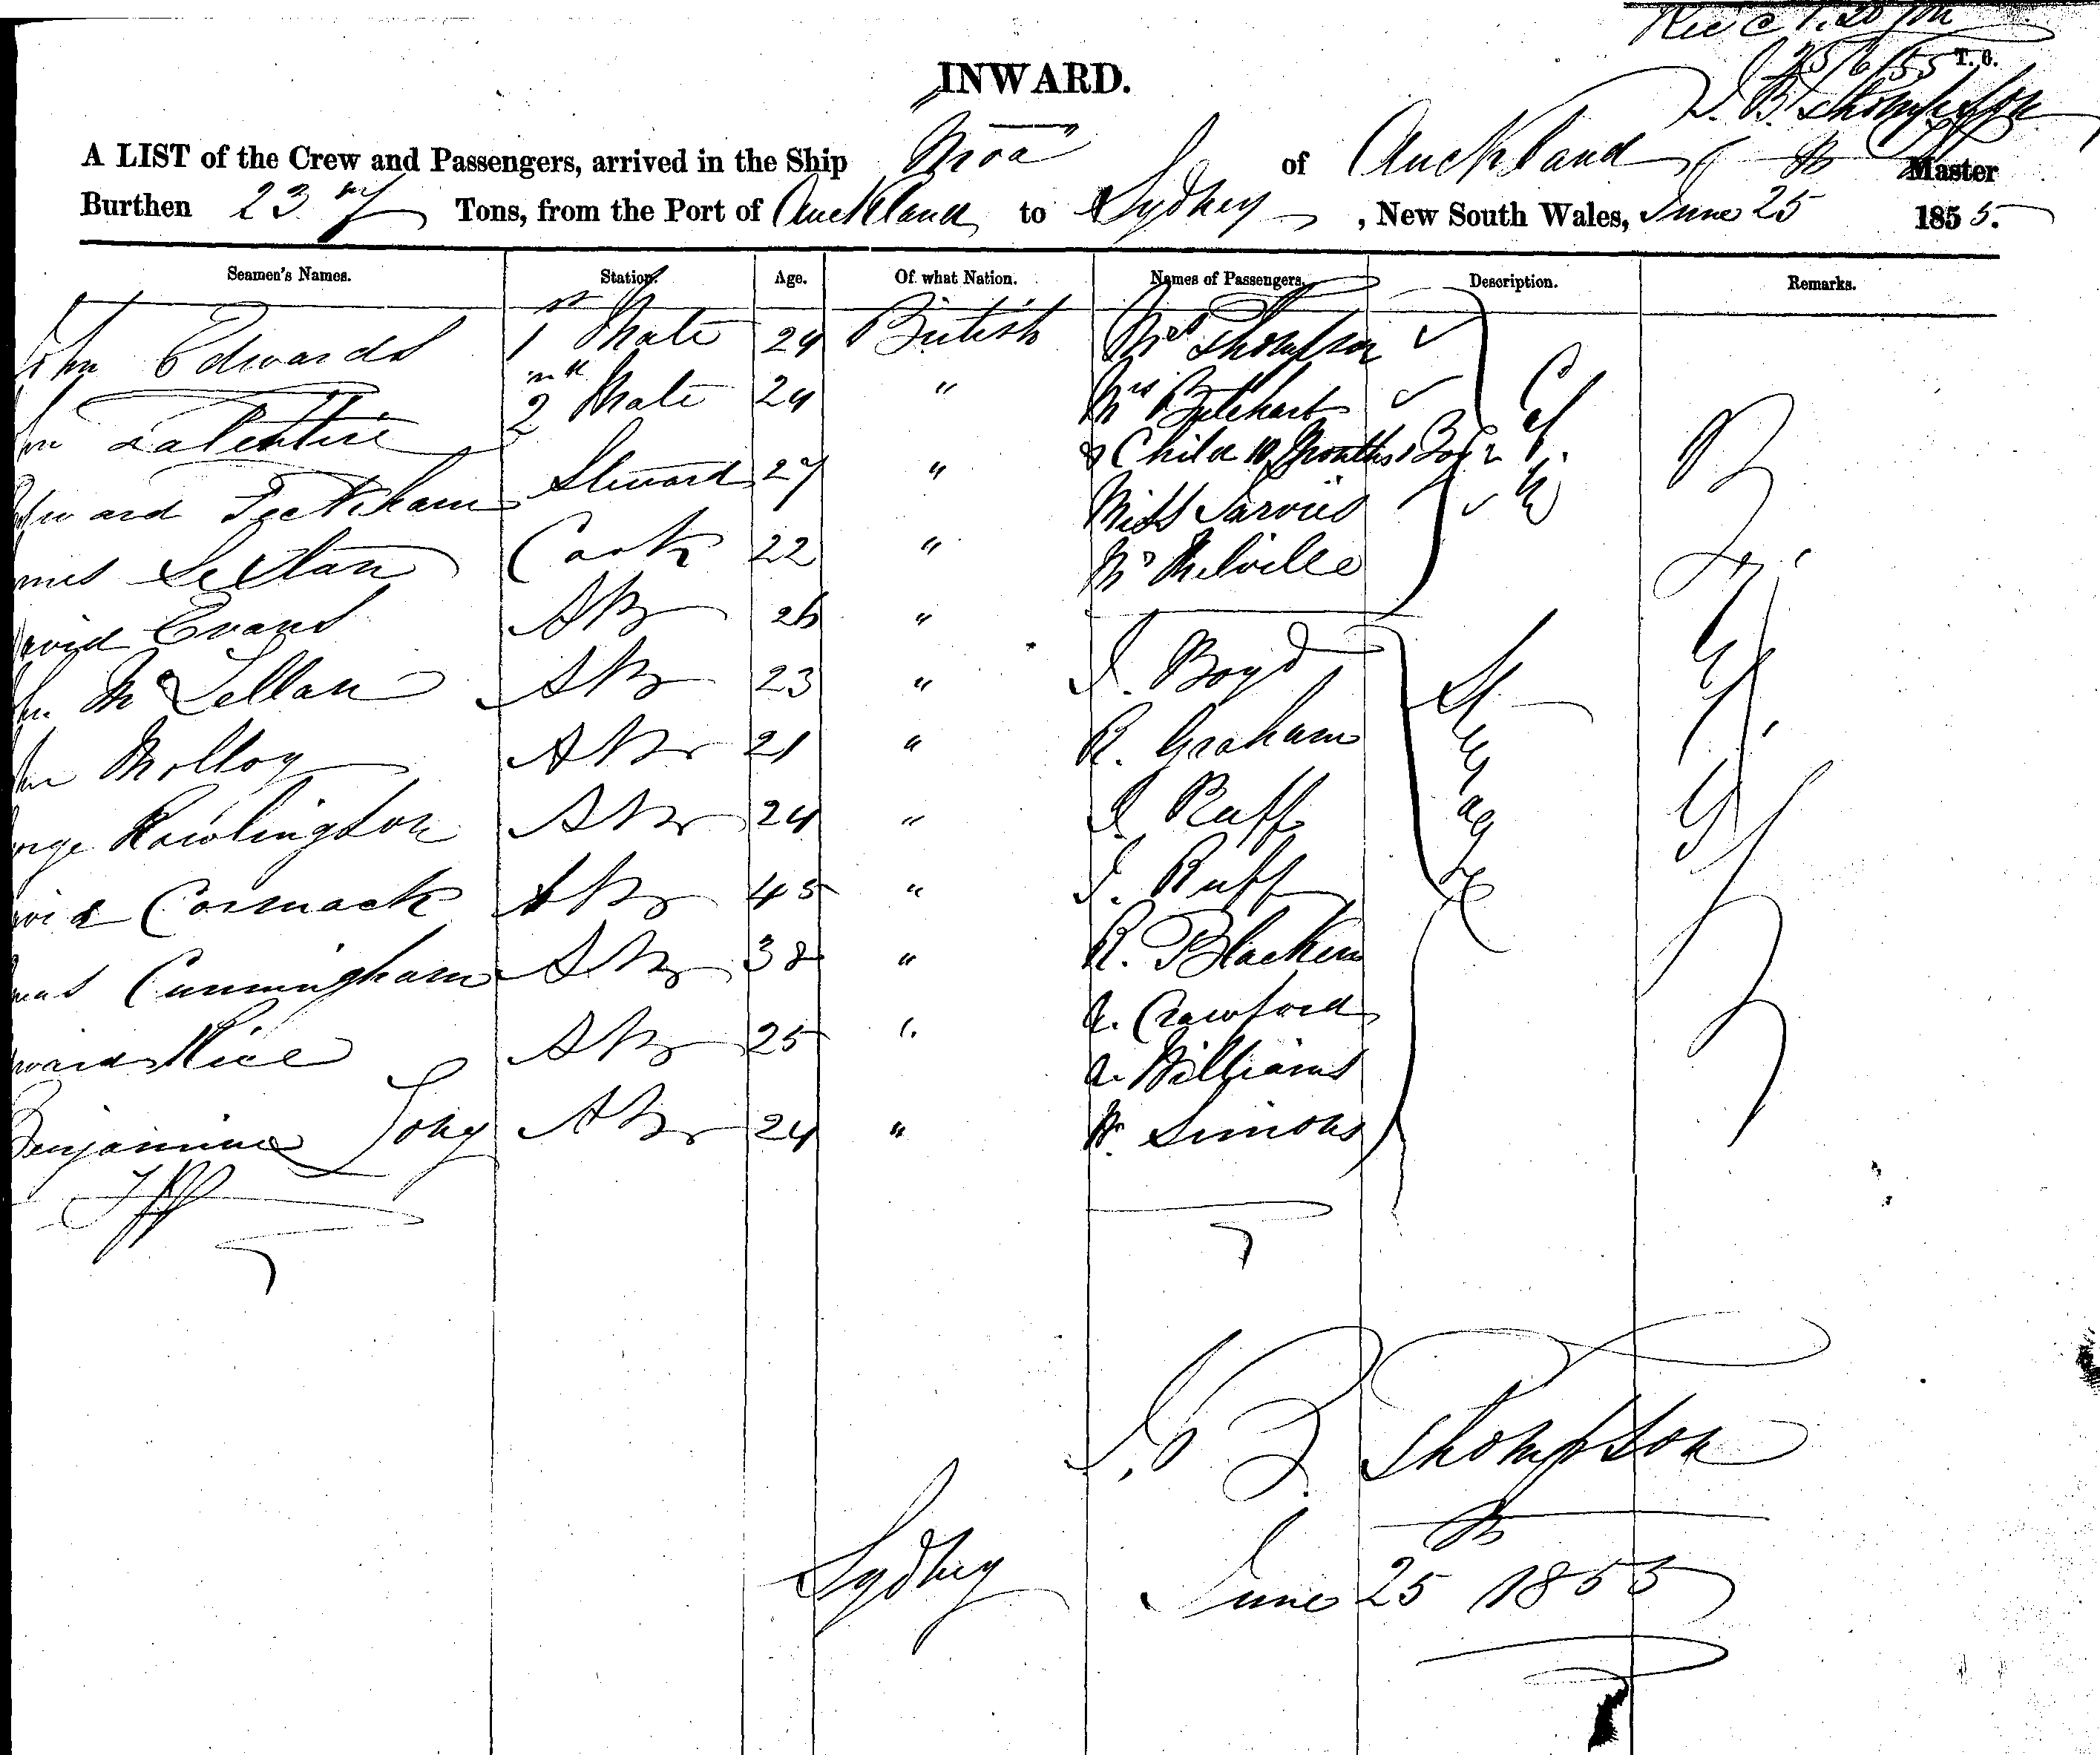 Rec'd 1.20 pm
25/6/55 T. G.
INWARD.
J. B. Thompson
A LIST of the Crew and Passengers, arrived in the Ship "Moa" of Auckland Master
Burthen 237 Tons, from the Port of Auckland to Sydney, New South Wales, June 25 1855.
Seamen's Names. Station. Age. Of what Nation. Names of Passengers. Description. Remarks.
John Edwards 1st Mate 24 British Mrs Thompson
2nd Mate 24 " Mrs
& Child 10 Months Boy
Steward 27 " Miss Jarvis
mes Sexton Cook 22 " Mr Melville
avid Evans AB 26 "
hn McLellan AB 23 " J. Boyd
hn Molloy AB 21 " R. Graham
orge Rawlington AB 24 " J. Ruff
vid Cormack AB 45 " J. Ruff
mas Cunningham AB 38 " R. Blacken
ward Rice AB 25 " A. Crawford
A. Williams
Benjamin AB 24 " W. Simons
Steerage
J. B. Thompson
Sydney June 25 1855